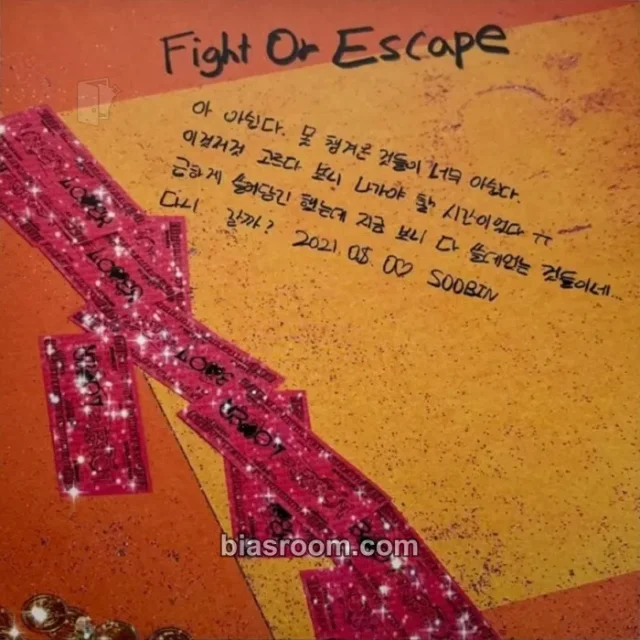 Fight Or Escape
아 아쉽다. 못 챙겨온 것들이 너무 아쉽다.
이것저것 고르다 보니 나가야 할 시간이었다 ㅠ
급하게 쓸어담긴 했는데 지금 보니 다 쓸데없는 것들이네...
다시 갈까? 2021. 08. 00 SOOBIN
LO♥ER
LO♥ER
LO♥ER
biasroom.com